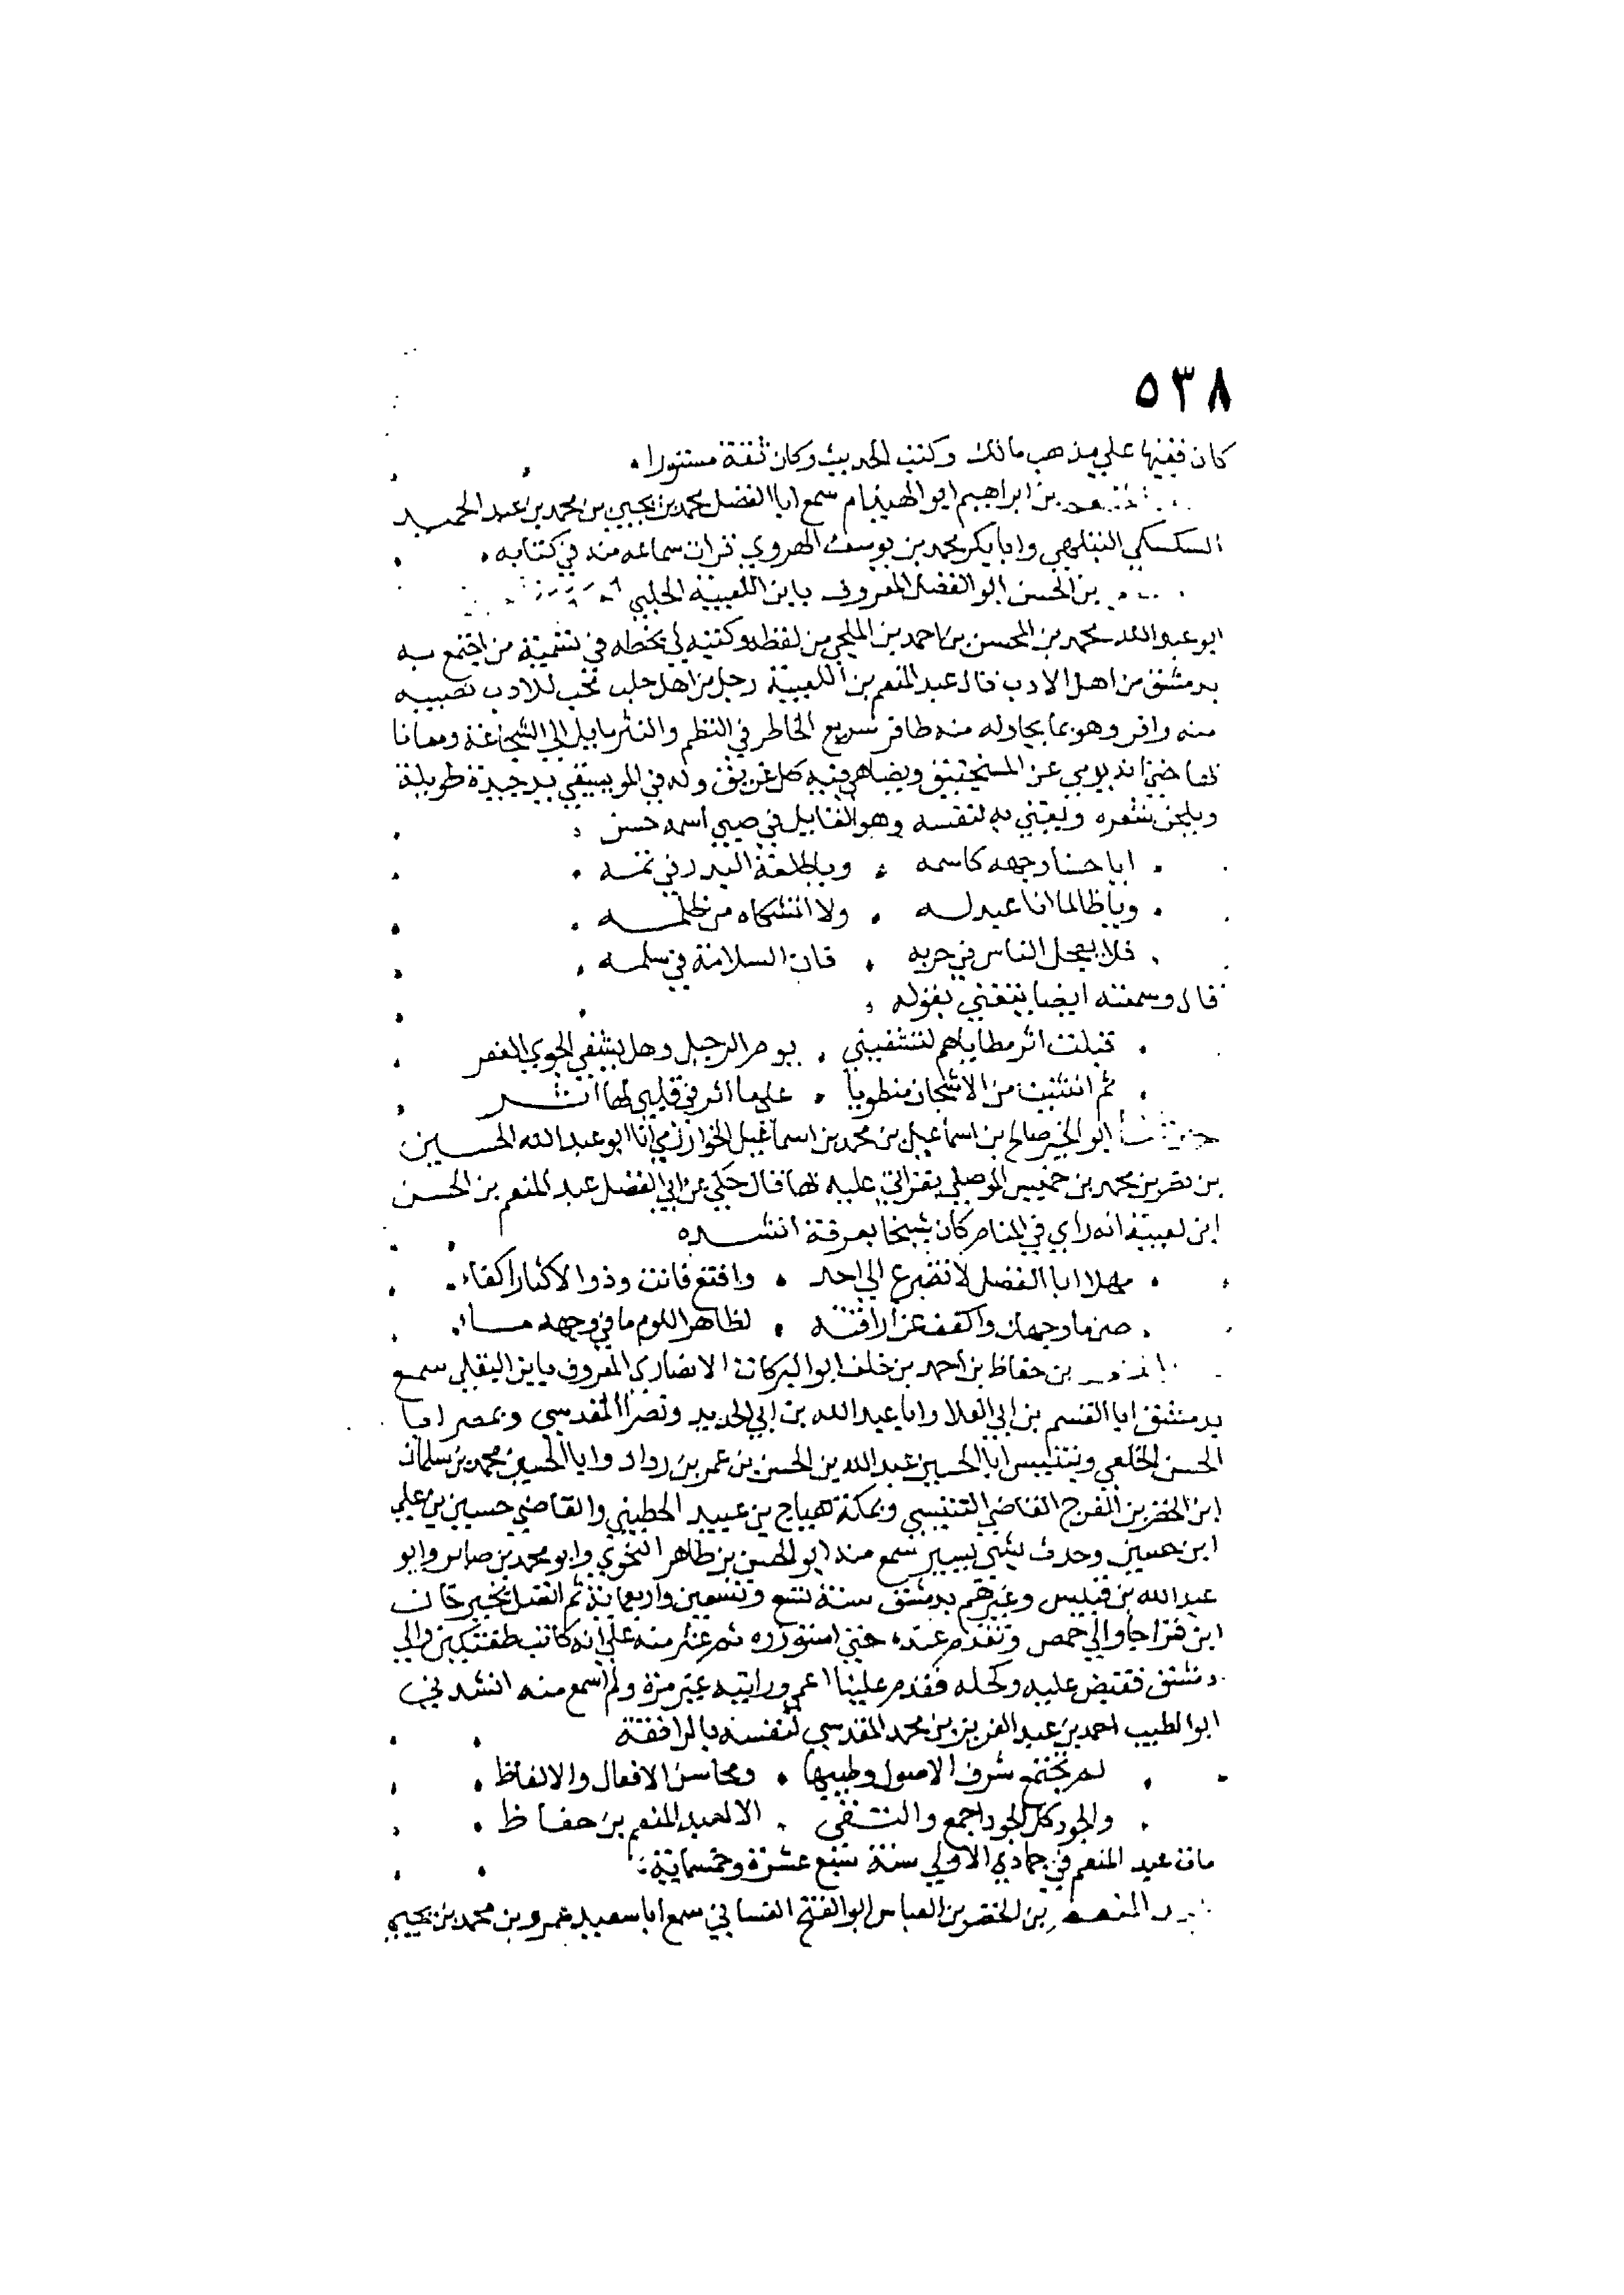 ٥٣٨
كان فقيها علي مذهب مالك وكتب الحديث وكان ثقة مستورا
بن ابراهيم ابو الهيذام سمع ابا الفضل محمد بن يحيي بن محمد بن عبد الحميد
السكسكي البتلهي وابا بكر محمد بن يوسف الهروي قرات سماعه منه في كتابه
بن الحسن ابو الفضل المعروف بابن اللعيبة الحلبي
ابو عبد الله محمد بن المحسن بن احمد بن الملحي من لفظه وكتبه لي بخطه في تسمية من اجتمع به
بدمشق من اهل الادب قال عبد المنعم بن اللعيبة رجل من اهل حلب محب للادب نصيبه
منه وافر وهو بما يحاوله منه ظافر سريع الخاطر في النظم والنثر مايل الي الشجاعة ومعاناتها
حتي انه يرمي عن المنجنيق ويضاهي فيه كل عريق وله في الموسيقي يد جيدة طويلة
ويلحن شعره ويغني به لنفسه وهو القايل في صبي اسمه حسن
ايا حسنا وجهه كاسمه ويا طلعة البدر في تمه
ويا ظالما انا عبد له ولا اتشكاه من ظلمه
فلا يعجل الناس في حربه فان السلامة في سلمه
قال وسمعته ايضا يتغني بقوله
قبلت اثر مطاياهم لتشفيني يوم الرحيل وهل يشفي الجوي العفر
ثم انثنيت من الاشجان منطويا علي ما اثر في قلبي لها اثر
حدثنا ابو الخير صالح بن اسماعيل بن محمد بن اسماعيل الخوارزمي انا ابو عبد الله الحسين
بن نصر بن محمد بن خميس الموصلي بقراتي عليه بها قال حكي عن ابي الفضل عبد المنعم بن الحسن
ابن لعيبة انه راي في المنام كان شيخا بعرقة انشده
مهلا ابا الفضل لا تضرع الي احد واقنع فانت وذوا الاكثار اكفاء
صن ما وجهك واكفف عن اراقته لظاهر اللوم ما في وجهه ماء
بن حفاظ بن احمد بن خلف ابو البركات الانصاري المعروف بابن البقلي سمع
بدمشق ابا القسم بن ابي العلا وابا عبد الله بن ابي الحديد ونصرا المقدسي وبمصر ابا
الحسن الخلعي وبتنيس ابا الحسين عبد الله بن الحسن بن عمر بن رواد وابا الحسين محمد بن سلمان
ابن الخضر بن الفرج القاضي التنيسي وبمكة هياج بن عبيد الحطيني والقاضي حسين بن علي
ابن حسين وحدث بشي يسير سمع منه ابو الحسن بن طاهر النحوي وابو محمد بن صابر وابو
عبد الله بن قبيس وغيرهم بدمشق سنة تسع وتسعين واربعماية ثم اتصل بخيرخان
ابن قراجا والي حمص وتقدم عنده حتي استوزره ثم عثر منه علي انه كاتب طغتكين والي
دمشق فقبض عليه وكحله فقدم علينا اعمي ورايته غير مرة ولم اسمع منه انشدني
ابو الطيب احمد بن عبد العزيز بن محمد المقدسي لنفسه بالرافقة
لم تجتمع شرف الاصول وطيبها ومحاسن الافعال والالفاظ
والجود كل الجود اجمع والتقي الا لعبد المنعم بن حفاظ
مات عبد المنعم في جمادي الاولي سنة سبع عشرة وخمسماية
عبد المنعم بن الخضر بن العباس ابو الفتح الغساني سمع ابا سعيد عمرو بن محمد بن يحيي